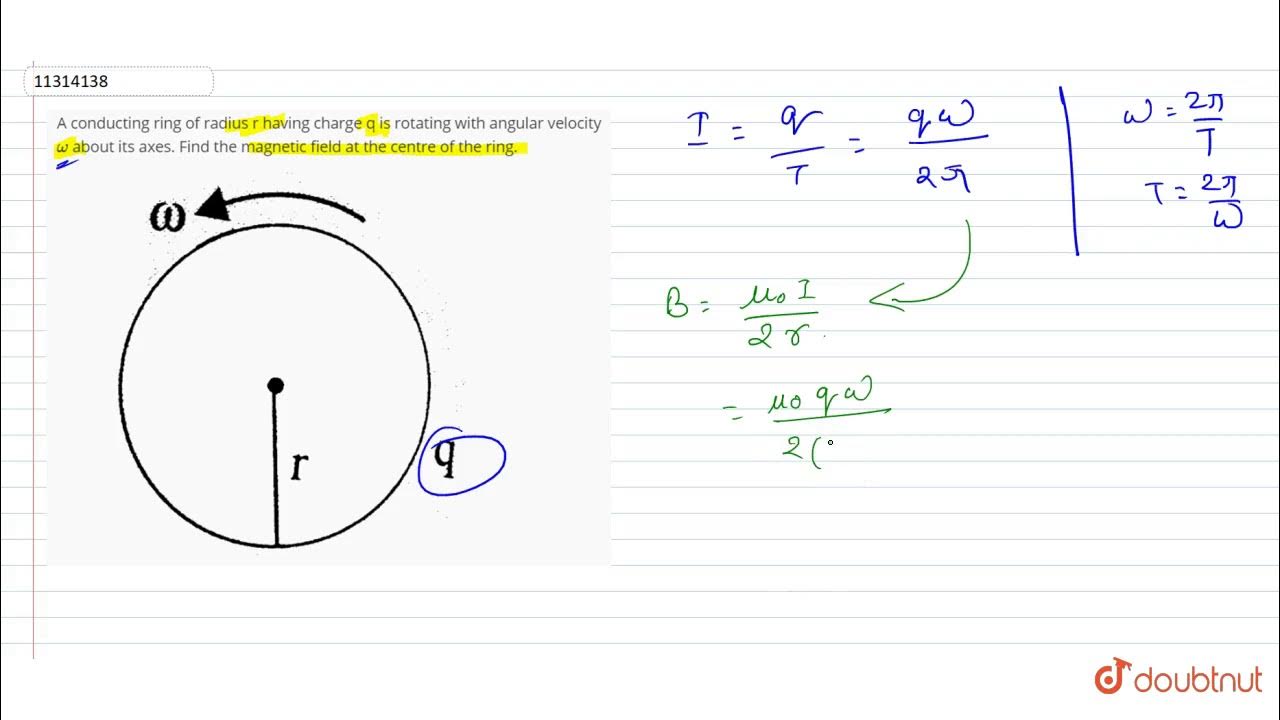 11314138
A conducting ring of radius r having charge q is rotating with angular velocity
ω about its axes. Find the magnetic field at the centre of the ring.
ω
r
q
I = q/T = qω/2π
ω = 2π/T
T = 2π/ω
B = μ₀ I/2 r
= μ₀ q ω/2 (
doubtnut